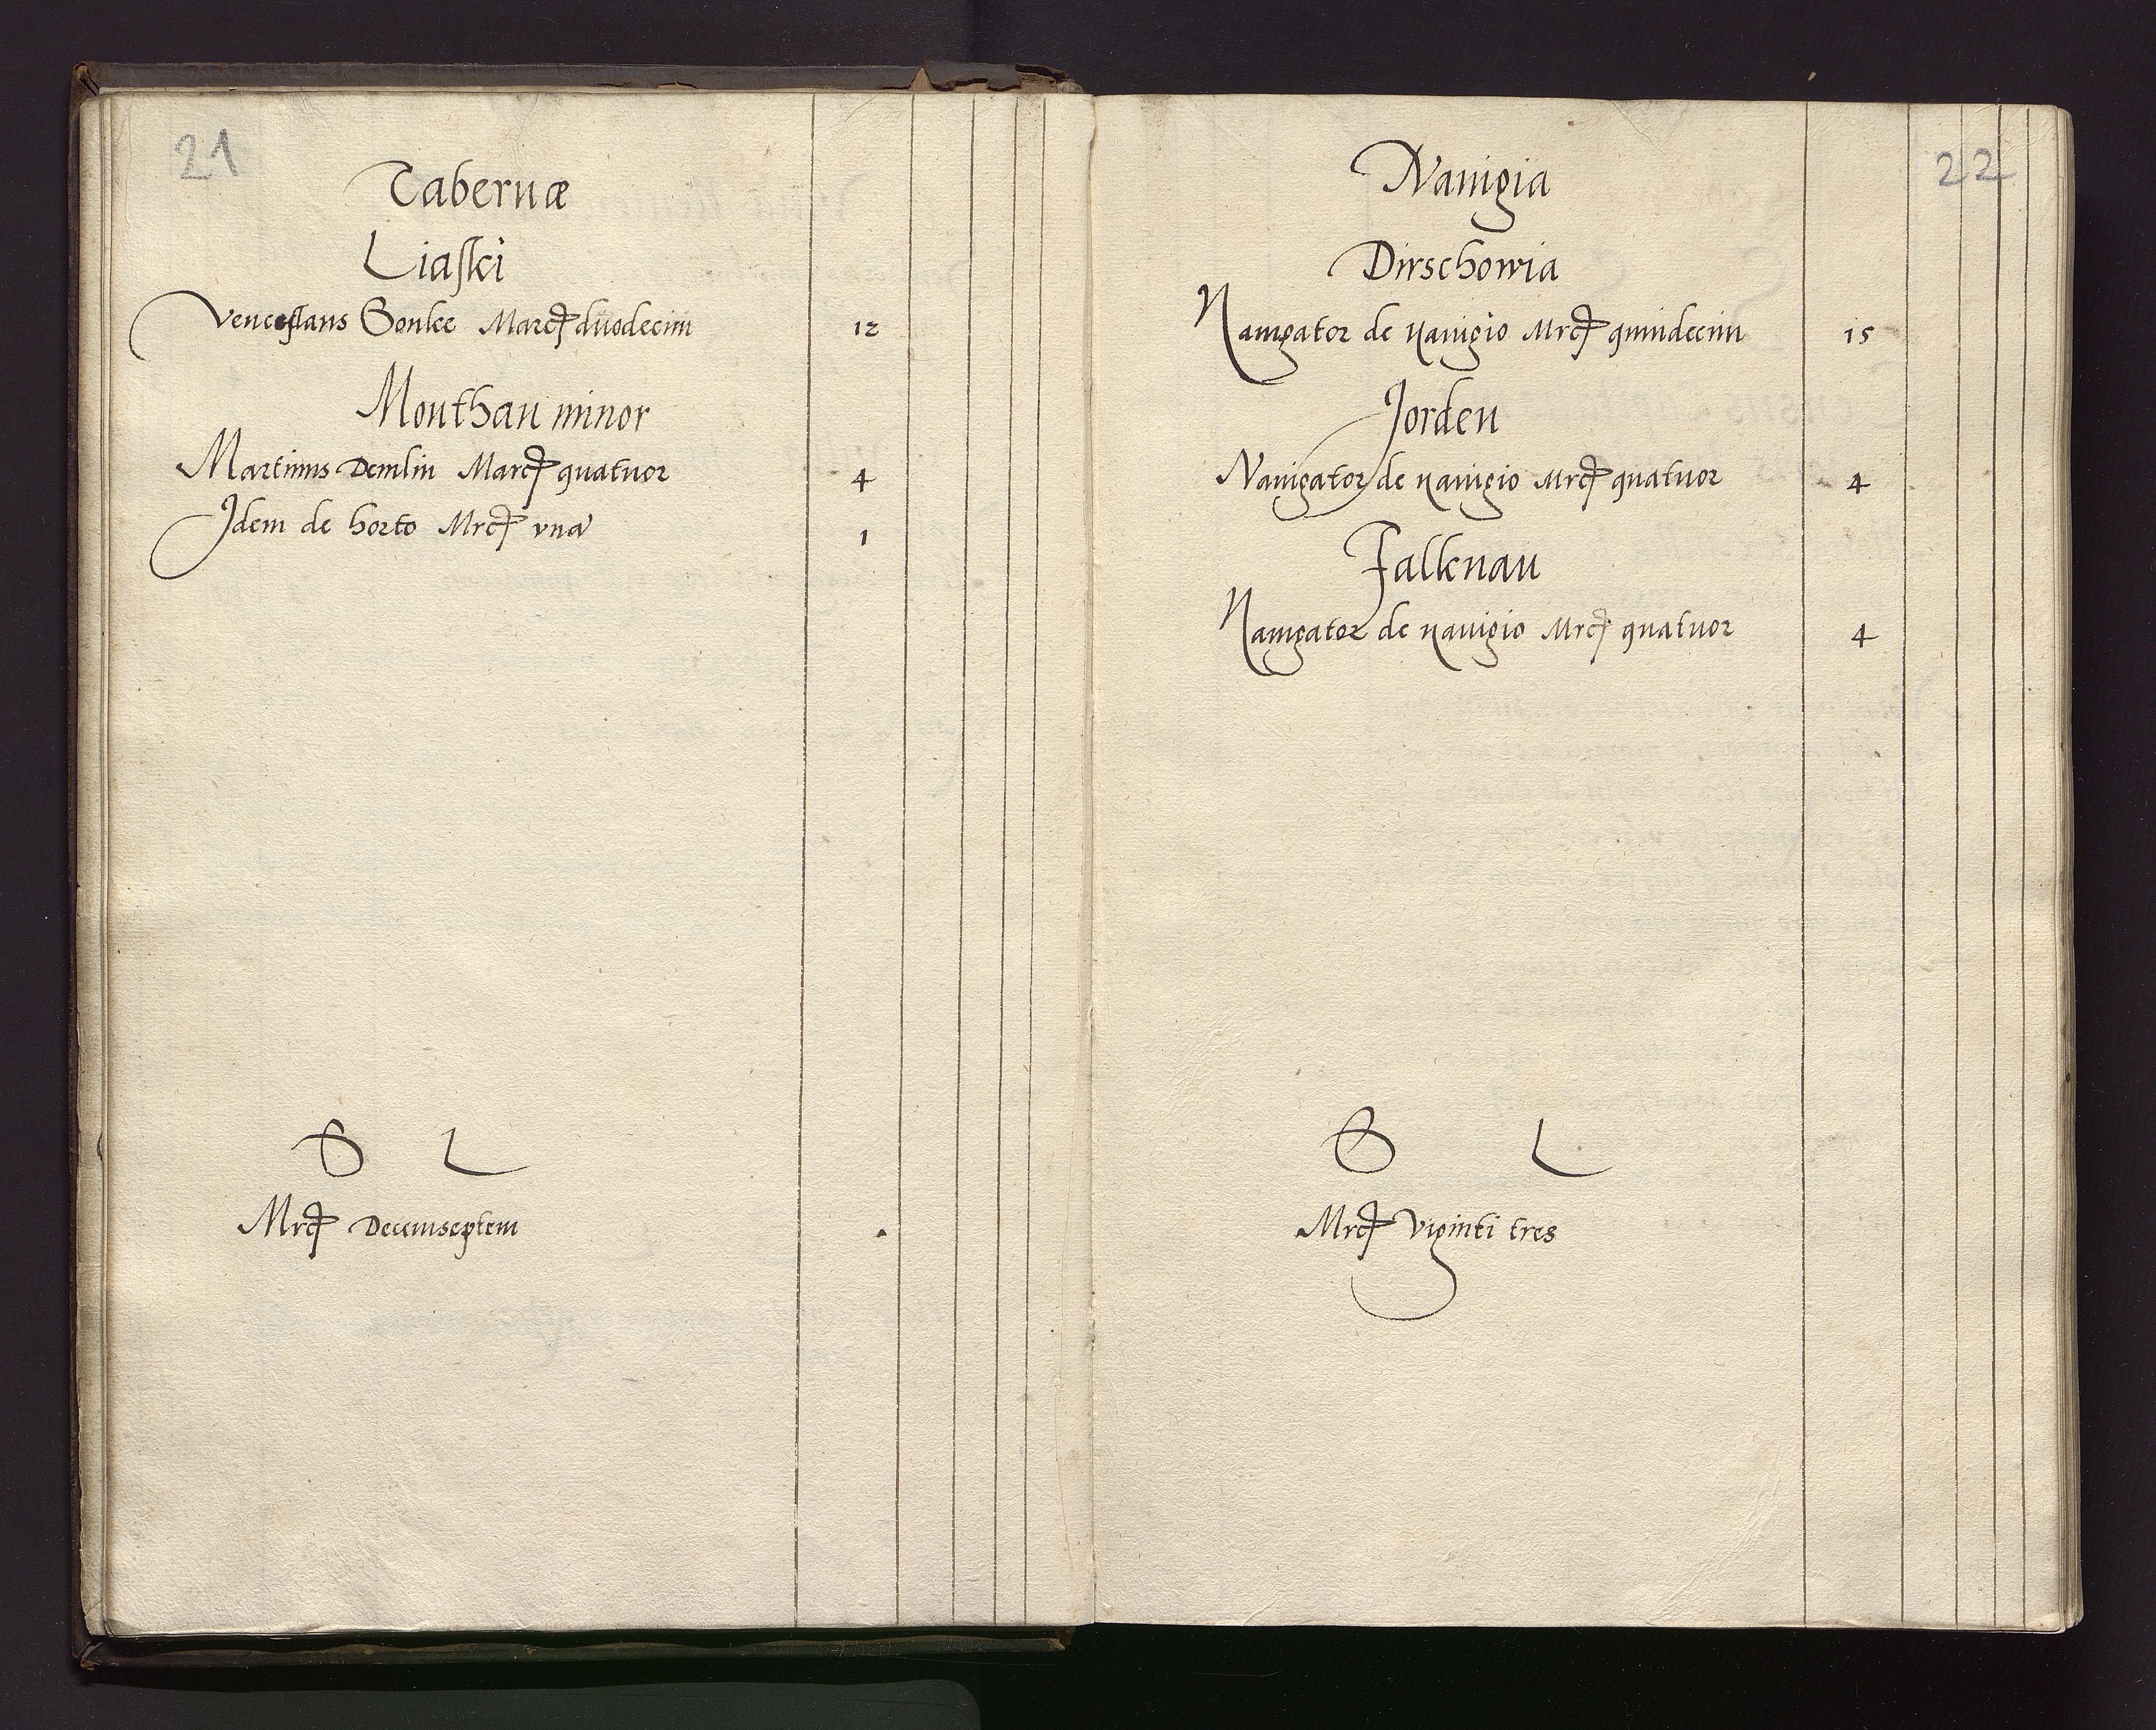 21
Tabernæ
Liaski
Venceslaus Sonke Marcʒ duodecim 12
Monthau minor
Martinus Demlin Marcʒ quatuor 4
Idem de horto Mrcʒ vna 1
S L
Mrcʒ Decemseptem
22
Nauigia
Dirschowia
Nauigator de nauigio Mrcʒ quindecim 15
Jorden
Nauigator de nauigio Mrcʒ quatuor 4
Falknau
Nauigator de nauigio Mrcʒ quatuor 4
S L
Mrcʒ Viginti tres